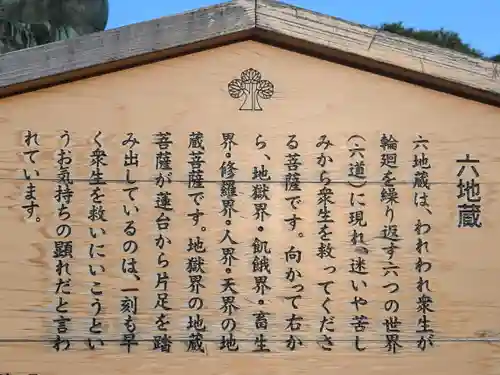 六地蔵
六地蔵は、われわれ衆生が
輪廻を繰り返す六つの世界
（六道）に現れ、迷いや苦し
みから衆生を救ってくださ
る菩薩です。向かって右か
ら、地獄界・飢餓界・畜生
界・修羅界・人界・天界の地
蔵菩薩です。地獄界の地蔵
菩薩が蓮台から片足を踏
み出しているのは、一刻も早
く衆生を救いにいこうとい
うお気持ちの顕れだと言わ
れています。